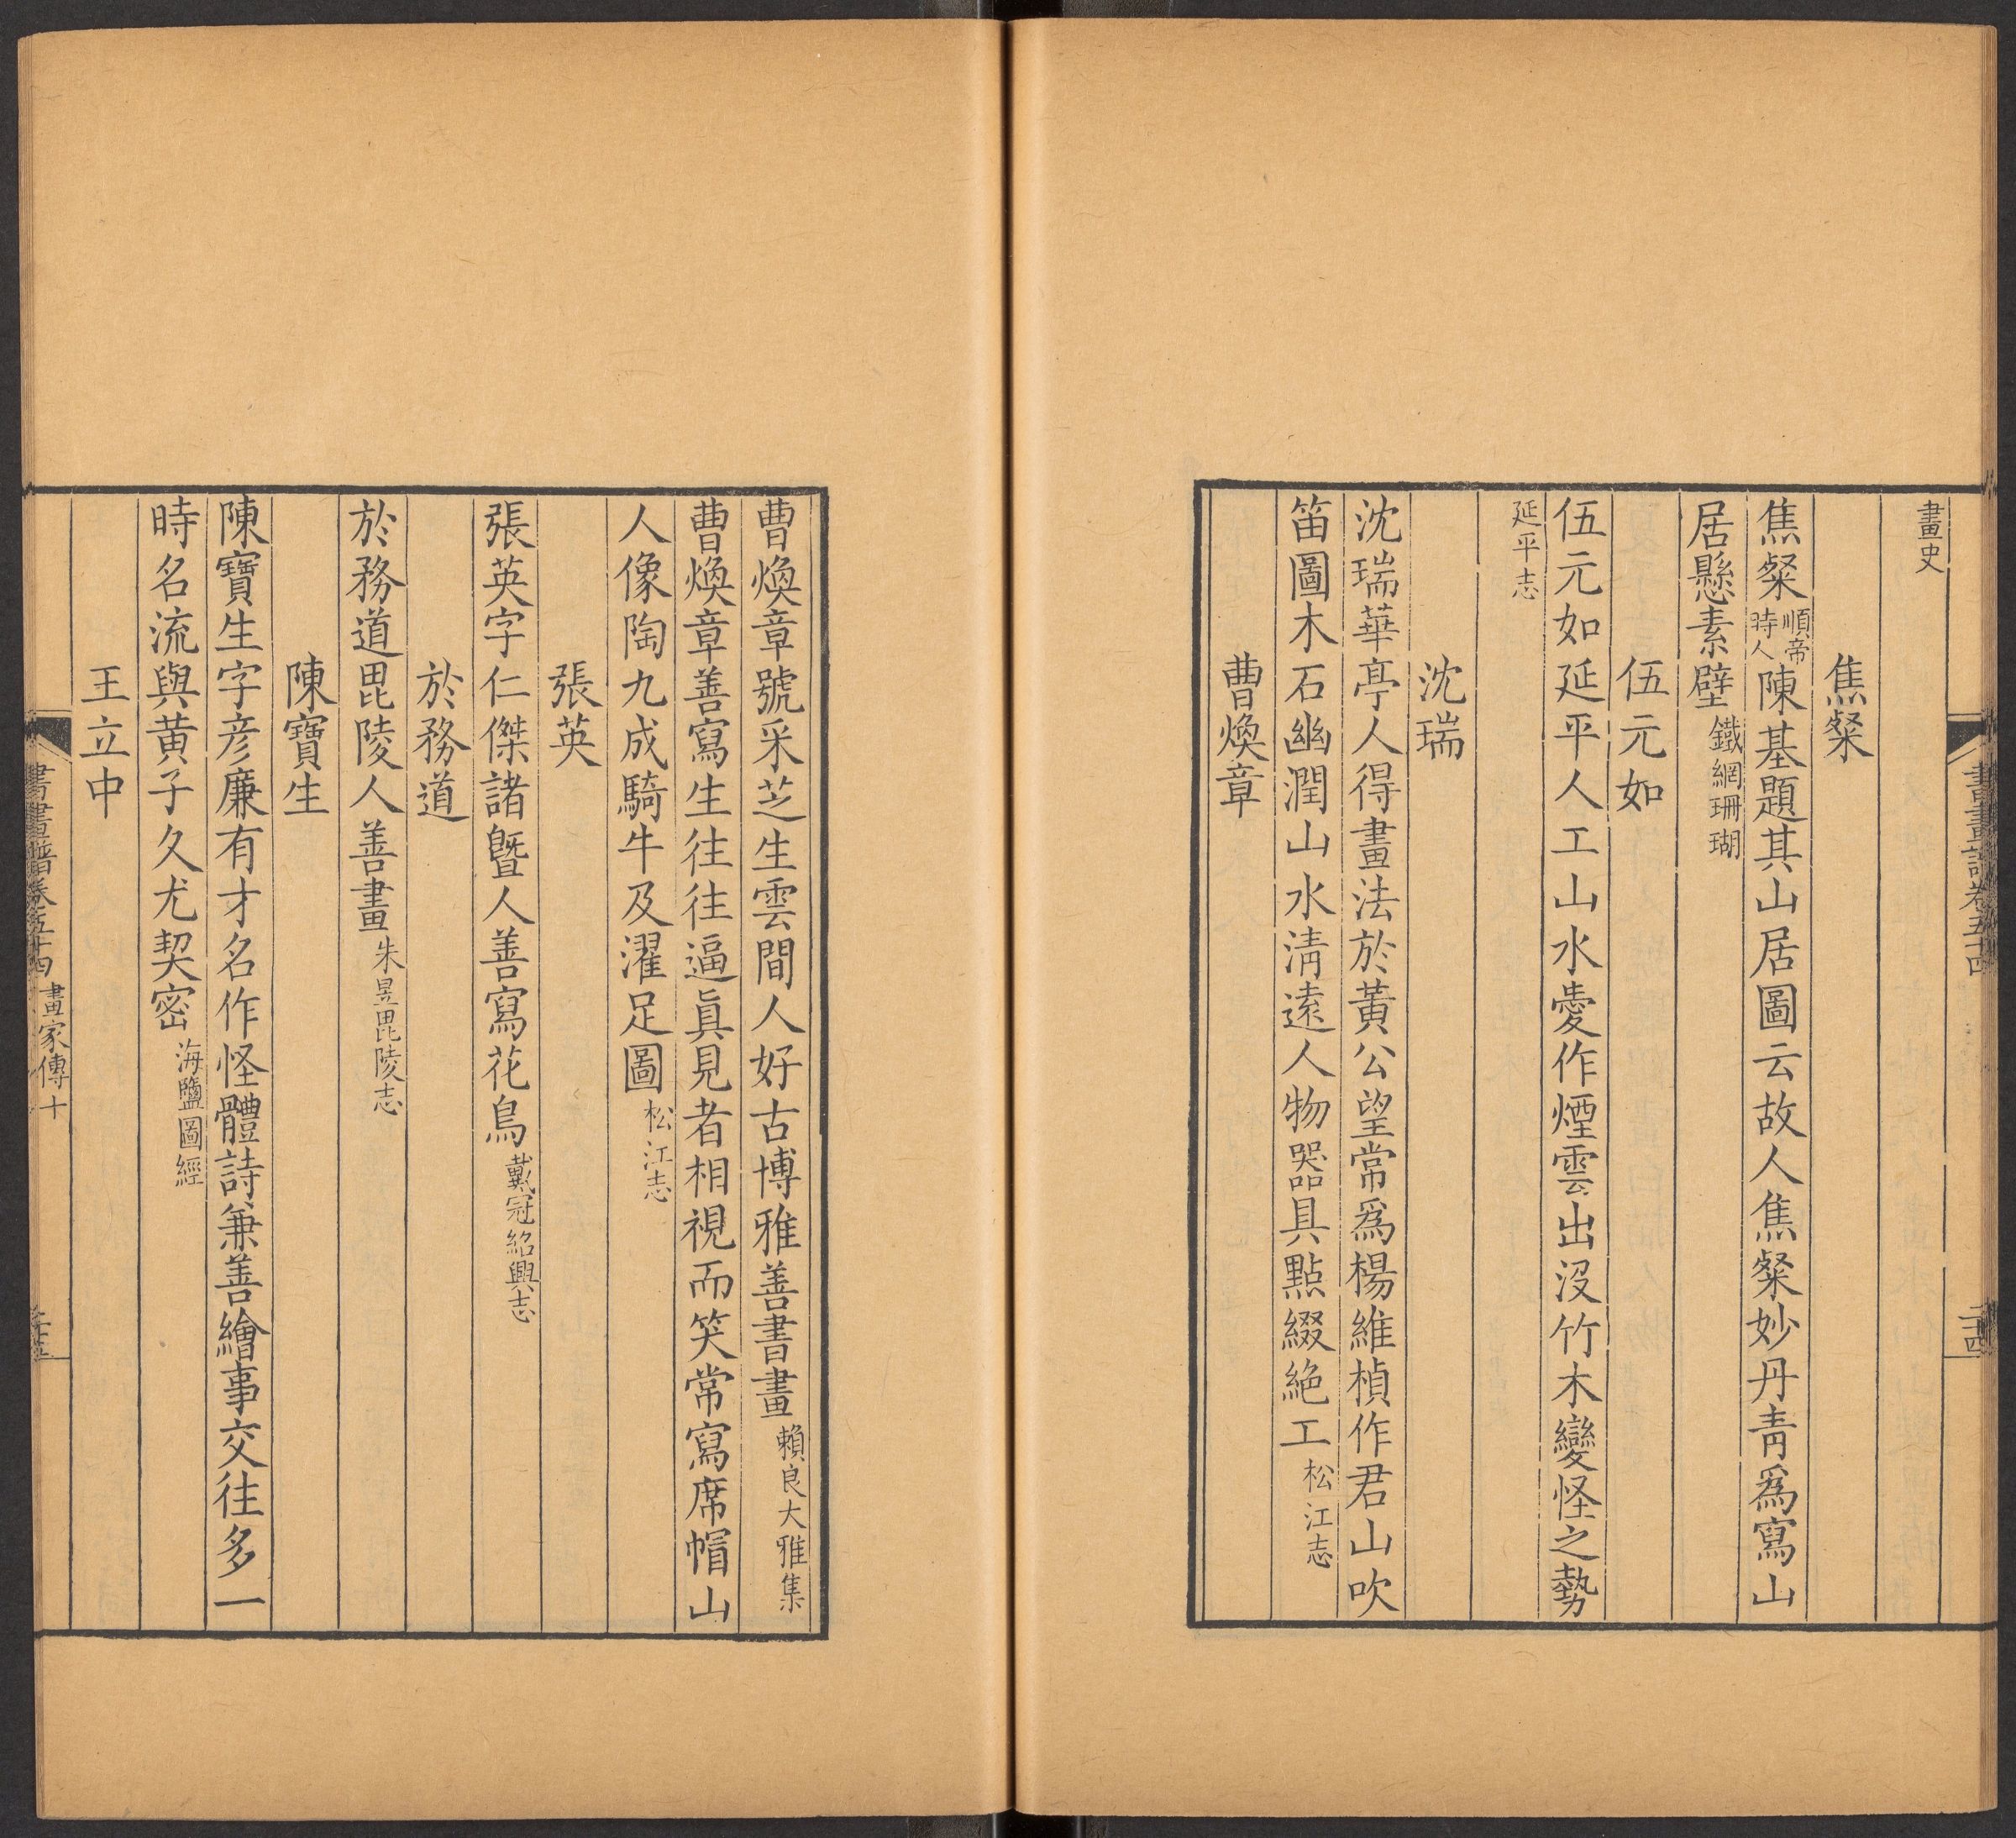 書畫譜卷五十四
二十四
畫史
焦粲
焦粲順帝時人陳基題其山居圖云故人焦粲妙丹青爲寫山
居懸素壁鐵網珊瑚
伍元如
伍元如延平人工山水愛作煙雲出沒竹木變怪之勢
延平志
沈瑞
沈瑞華亭人得畫法於黃公望常爲楊維楨作君山吹
笛圖木石幽潤山水淸遠人物器具點綴絶工松江志
曹煥章
曹煥章號采芝生雲間人好古博雅善書畫賴良大雅集
曹煥章善寫生往往逼眞見者相視而笑常寫席帽山
人像陶九成騎牛及濯足圖松江志
張英
張英字仁傑諸曁人善寫花鳥戴冠紹興志
於務道
於務道毘陵人善畫朱昱毘陵志
陳寶生
陳寶生字彦廉有才名作怪體詩兼善繪事交往多一
時名流與黄子久尤契密海鹽圖經
王立中
書畫譜卷五十四 畫家傳十